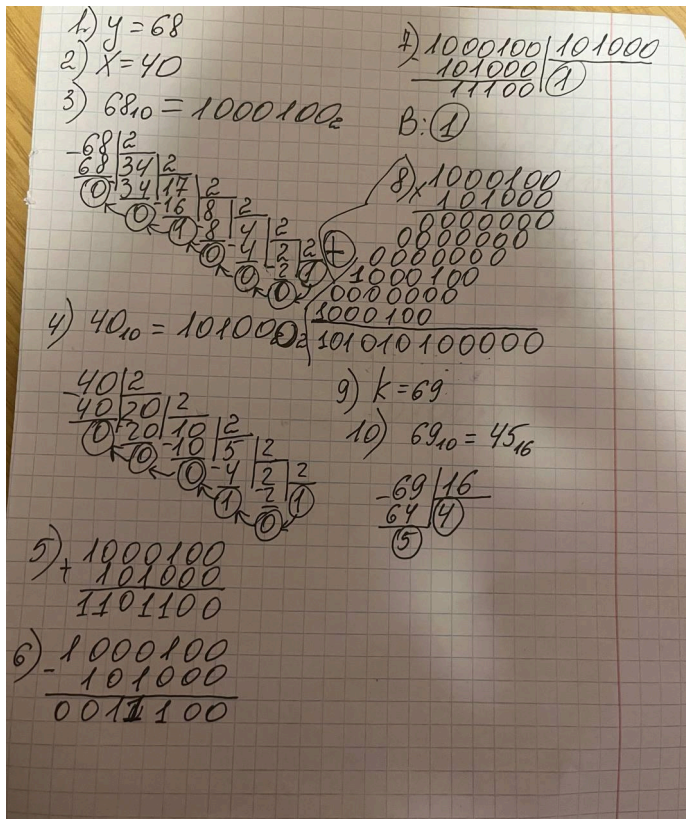 1.) y = 68
2) x = 40
3) 68₁₀ = 1000100₂
-68 | 2
68 | 34 | 2
0 | 34 | 17 | 2
0 -16 | 8 | 2
1 -8 | 4 | 2
0 -4 | 2 | 2
0 -2 | 1
0
4) 40₁₀ = 101000₂
-40 | 2
40 | 20 | 2
0 -20 | 10 | 2
0 -10 | 5 | 2
0 -4 | 2 | 2
1 2 | 1
0
5) + 1000100
101000
1101100
6) - 1000100
101000
0011100
7) - 1000100 | 101000
101000 | 1
11100
В: 1
8) x 1000100
101000
0000000
0000000
0000000
+ 1000100
0000000
1000100
101010100000
9) k = 69
10) 69₁₀ = 45₁₆
-69 | 16
64 | 4
5